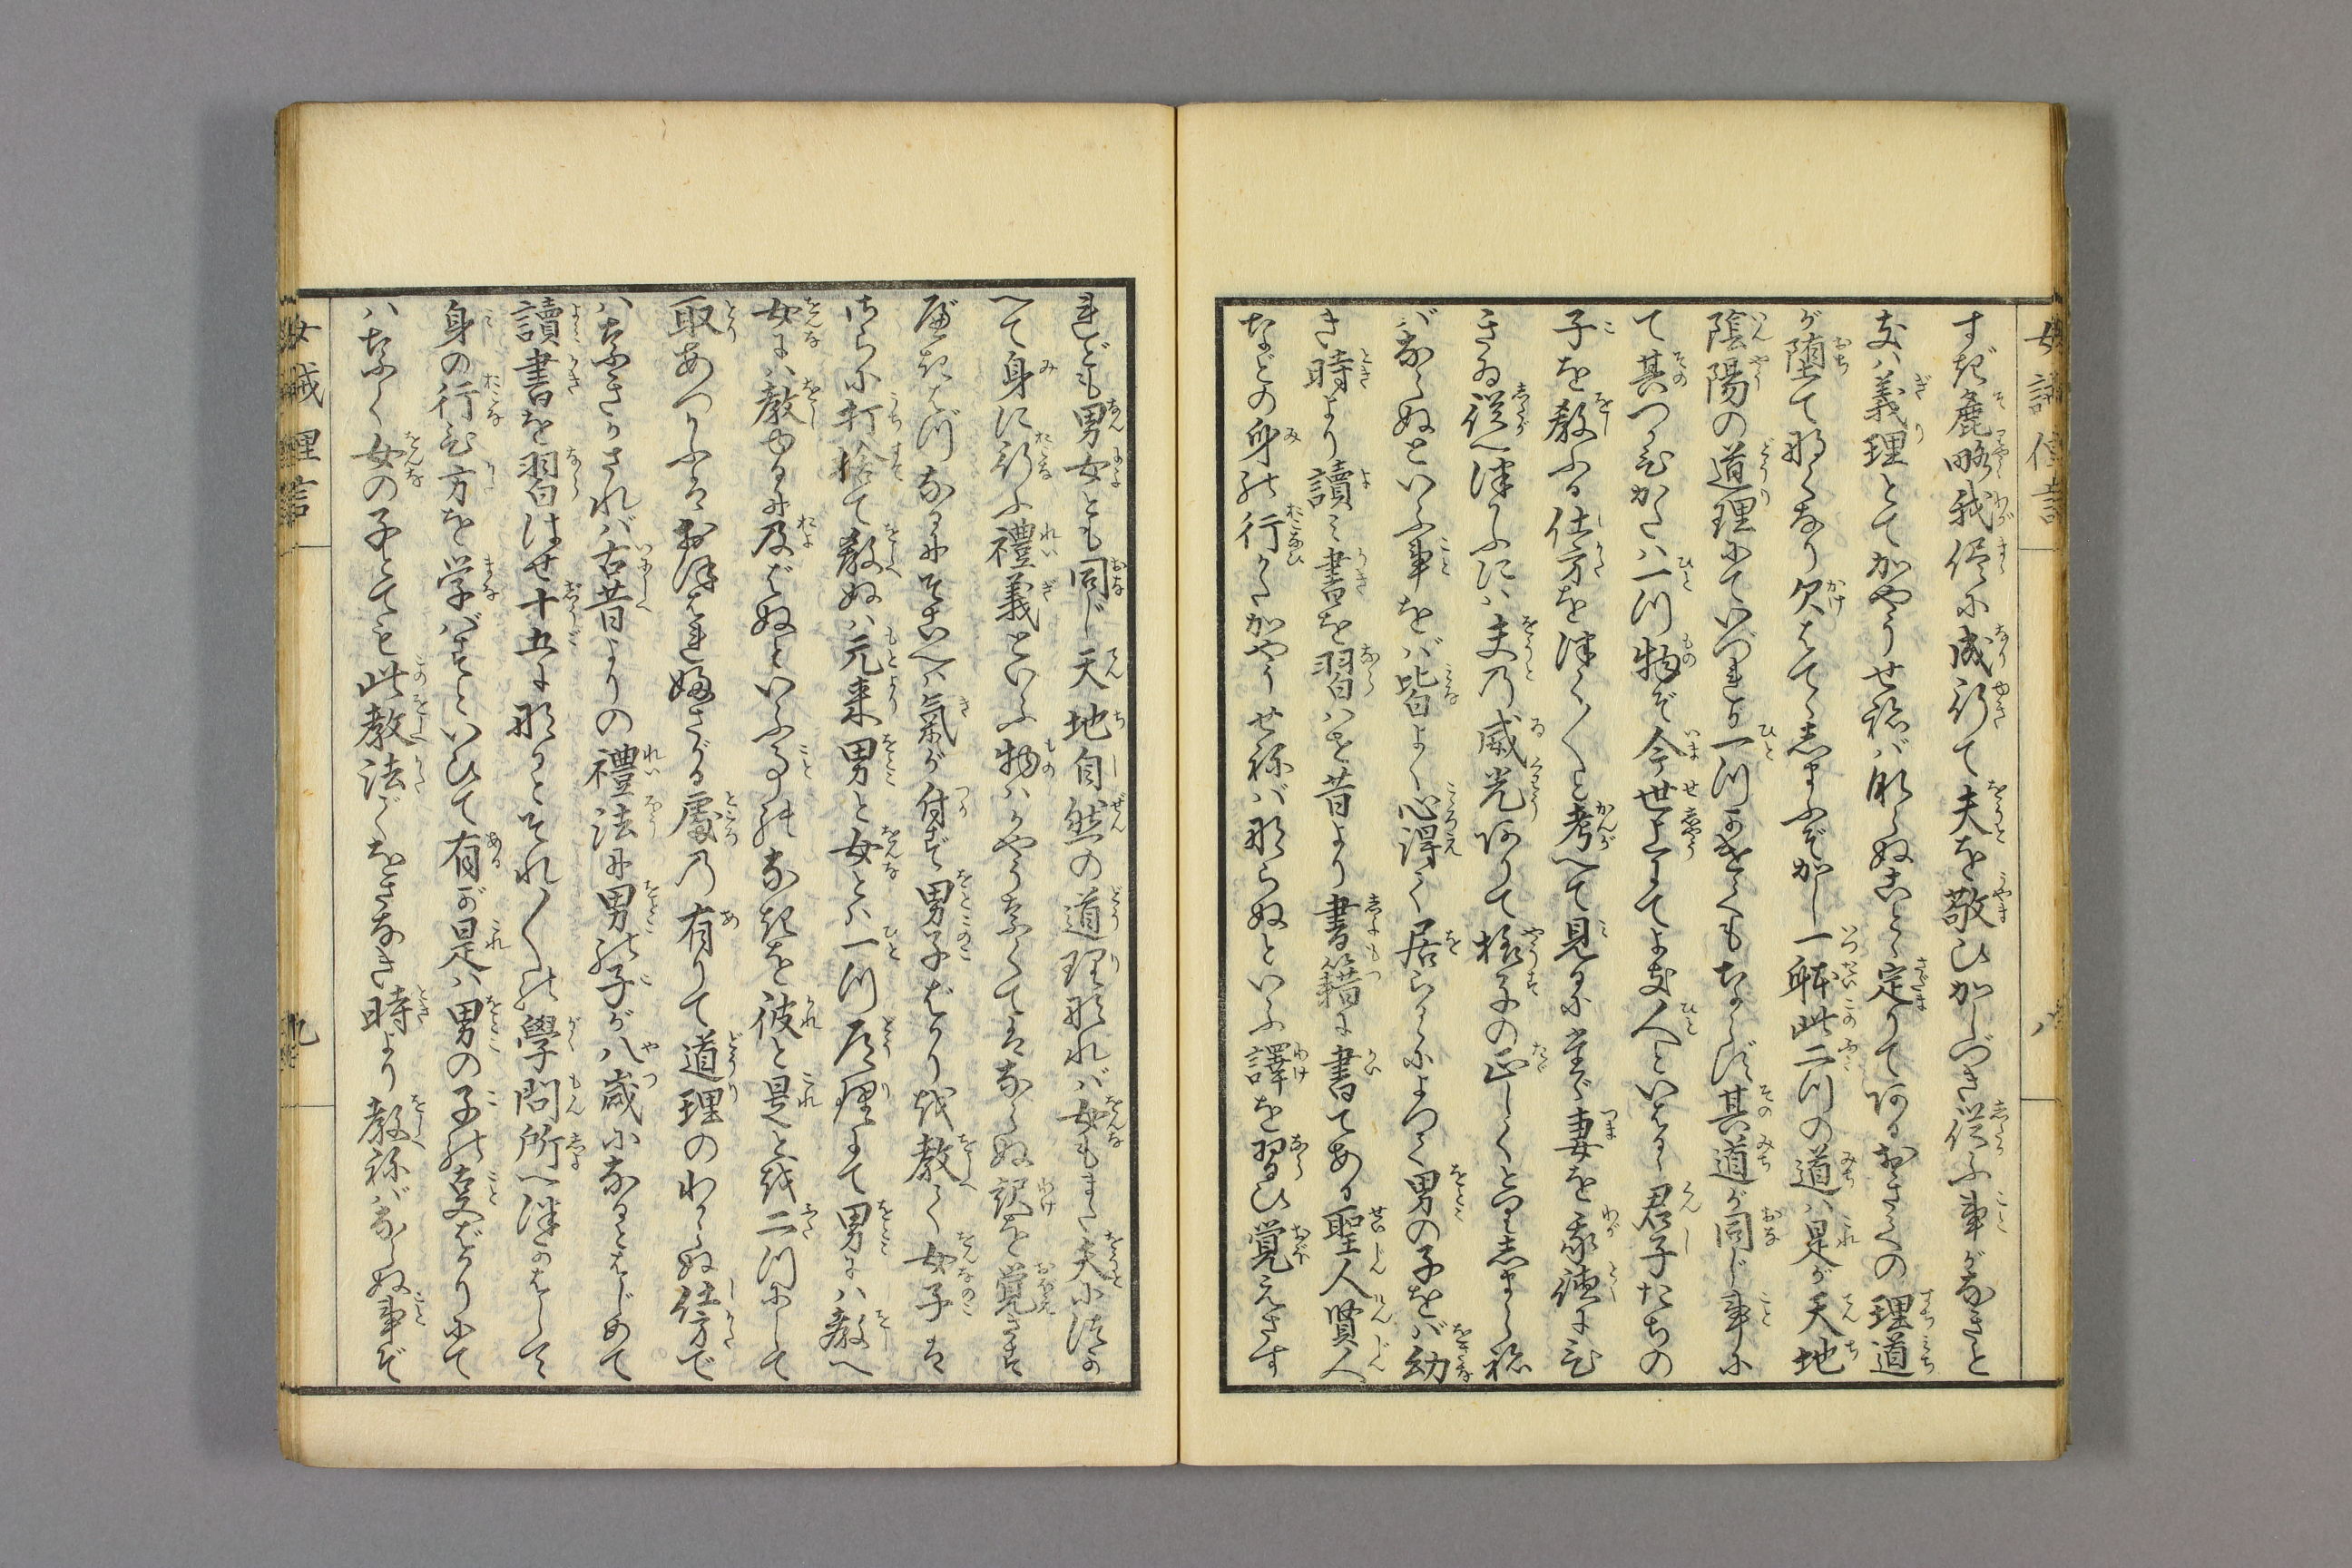 すぎ麁略我侭に成行て夫を敬ひかしづき従ふ事がなきと
きハ義理とてかやうせねば成らぬことゝ定りてあるおさへの理道
が堕て那くなり欠はてゝしまふぞかし一躰此二つの道ハ是が天地
陰陽の道理にていづれも一つかけてもならず其道が同じ事に
て其つかひかたハ一つ物ぞ今世上にてよき人といはるゝ君子たちの
子を教ふる仕方をつく〳〵と考へて見るに我が妻を
さゐ従へつかふにハ夫乃威光ありて様子の正しくとゝのへしまらね
ばならぬといふ事をば皆よく心得て居らるゝによつて男の子をば幼
き時より讀ミ書を習ハせ昔より書籍に書てある聖人賢人
などの身の行ひかたかやうせねば那らぬといふ譯を習ひ覚えさす
れども男女とも同じ天地自然の道理那れば女もまた夫につか
へて身に行ふ禮義といふ物ハかやうなくてはならぬ訳を覚さす
べきはづなるにそこへハ氣が付ず男子ばかり教へて女子は
さらに打捨て教ぬハ元来男と女とハ一つ道理にて男にハ教へ
女にハ教ゆるに及ばぬといふ事のなきを彼と是とを二つにして
取あつかふはおほきに踈さがる處の有りて道理のわからぬ仕方で
ハなきかされば古昔よりの禮法に男の子が八歳になるとはじめて
讀書を習はせ十五に那るとそれ〳〵の學問所へつかはして
身の行ひ方を学ばすといひて有が是ハ男の子の事ばかりにて
ハなく女の子とても此教法でをさなき時より教ねばならぬ事ぞ
女誡俚言
八
女誡俚言
九